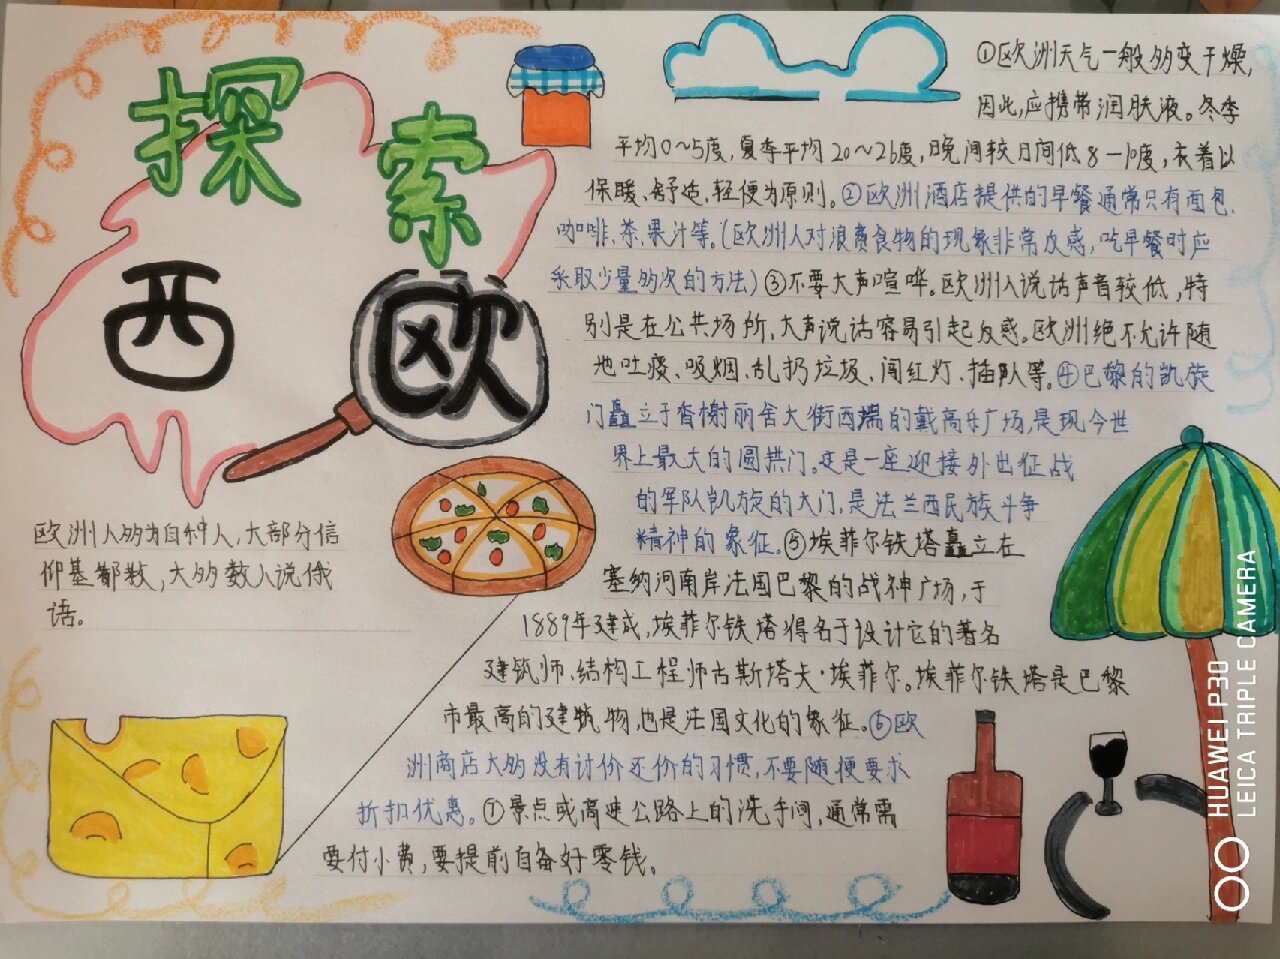 探索
西欧
①欧洲天气一般多变干燥,
因此,应携带润肤液。冬季
平均0~5度,夏季平均20~26度,晚间较日间低8—10度,衣着以
保暖、舒适、轻便为原则。②欧洲酒店提供的早餐通常只有面包、
咖啡、茶、果汁等。(欧洲人对浪费食物的现象非常反感,吃早餐时应
采取少量多次的方法)③不要大声喧哗。欧洲人说话声音较低,特
别是在公共场所,大声说话容易引起反感。欧洲绝不允许随
地吐痰、吸烟、乱扔垃圾、闯红灯、插队等。④巴黎的凯旋
门矗立于香榭丽舍大街西端的戴高乐广场,是现今世
界上最大的圆拱门。这是一座迎接外出征战
的军队凯旋的大门,是法兰西民族斗争
精神的象征。⑤埃菲尔铁塔矗立在
塞纳河南岸法国巴黎的战神广场,于
1889年建成,埃菲尔铁塔得名于设计它的著名
建筑师、结构工程师古斯塔夫·埃菲尔。埃菲尔铁塔是巴黎
市最高的建筑物,也是法国文化的象征。⑥欧
洲商店大多没有讨价还价的习惯,不要随便要求
折扣优惠。⑦景点或高速公路上的洗手间,通常需
要付小费,要提前自备好零钱。
欧洲人多为白种人,大部分信
仰基督教,大多数人说俄
语。
HUAWEI P30
LEICA TRIPLE CAMERA